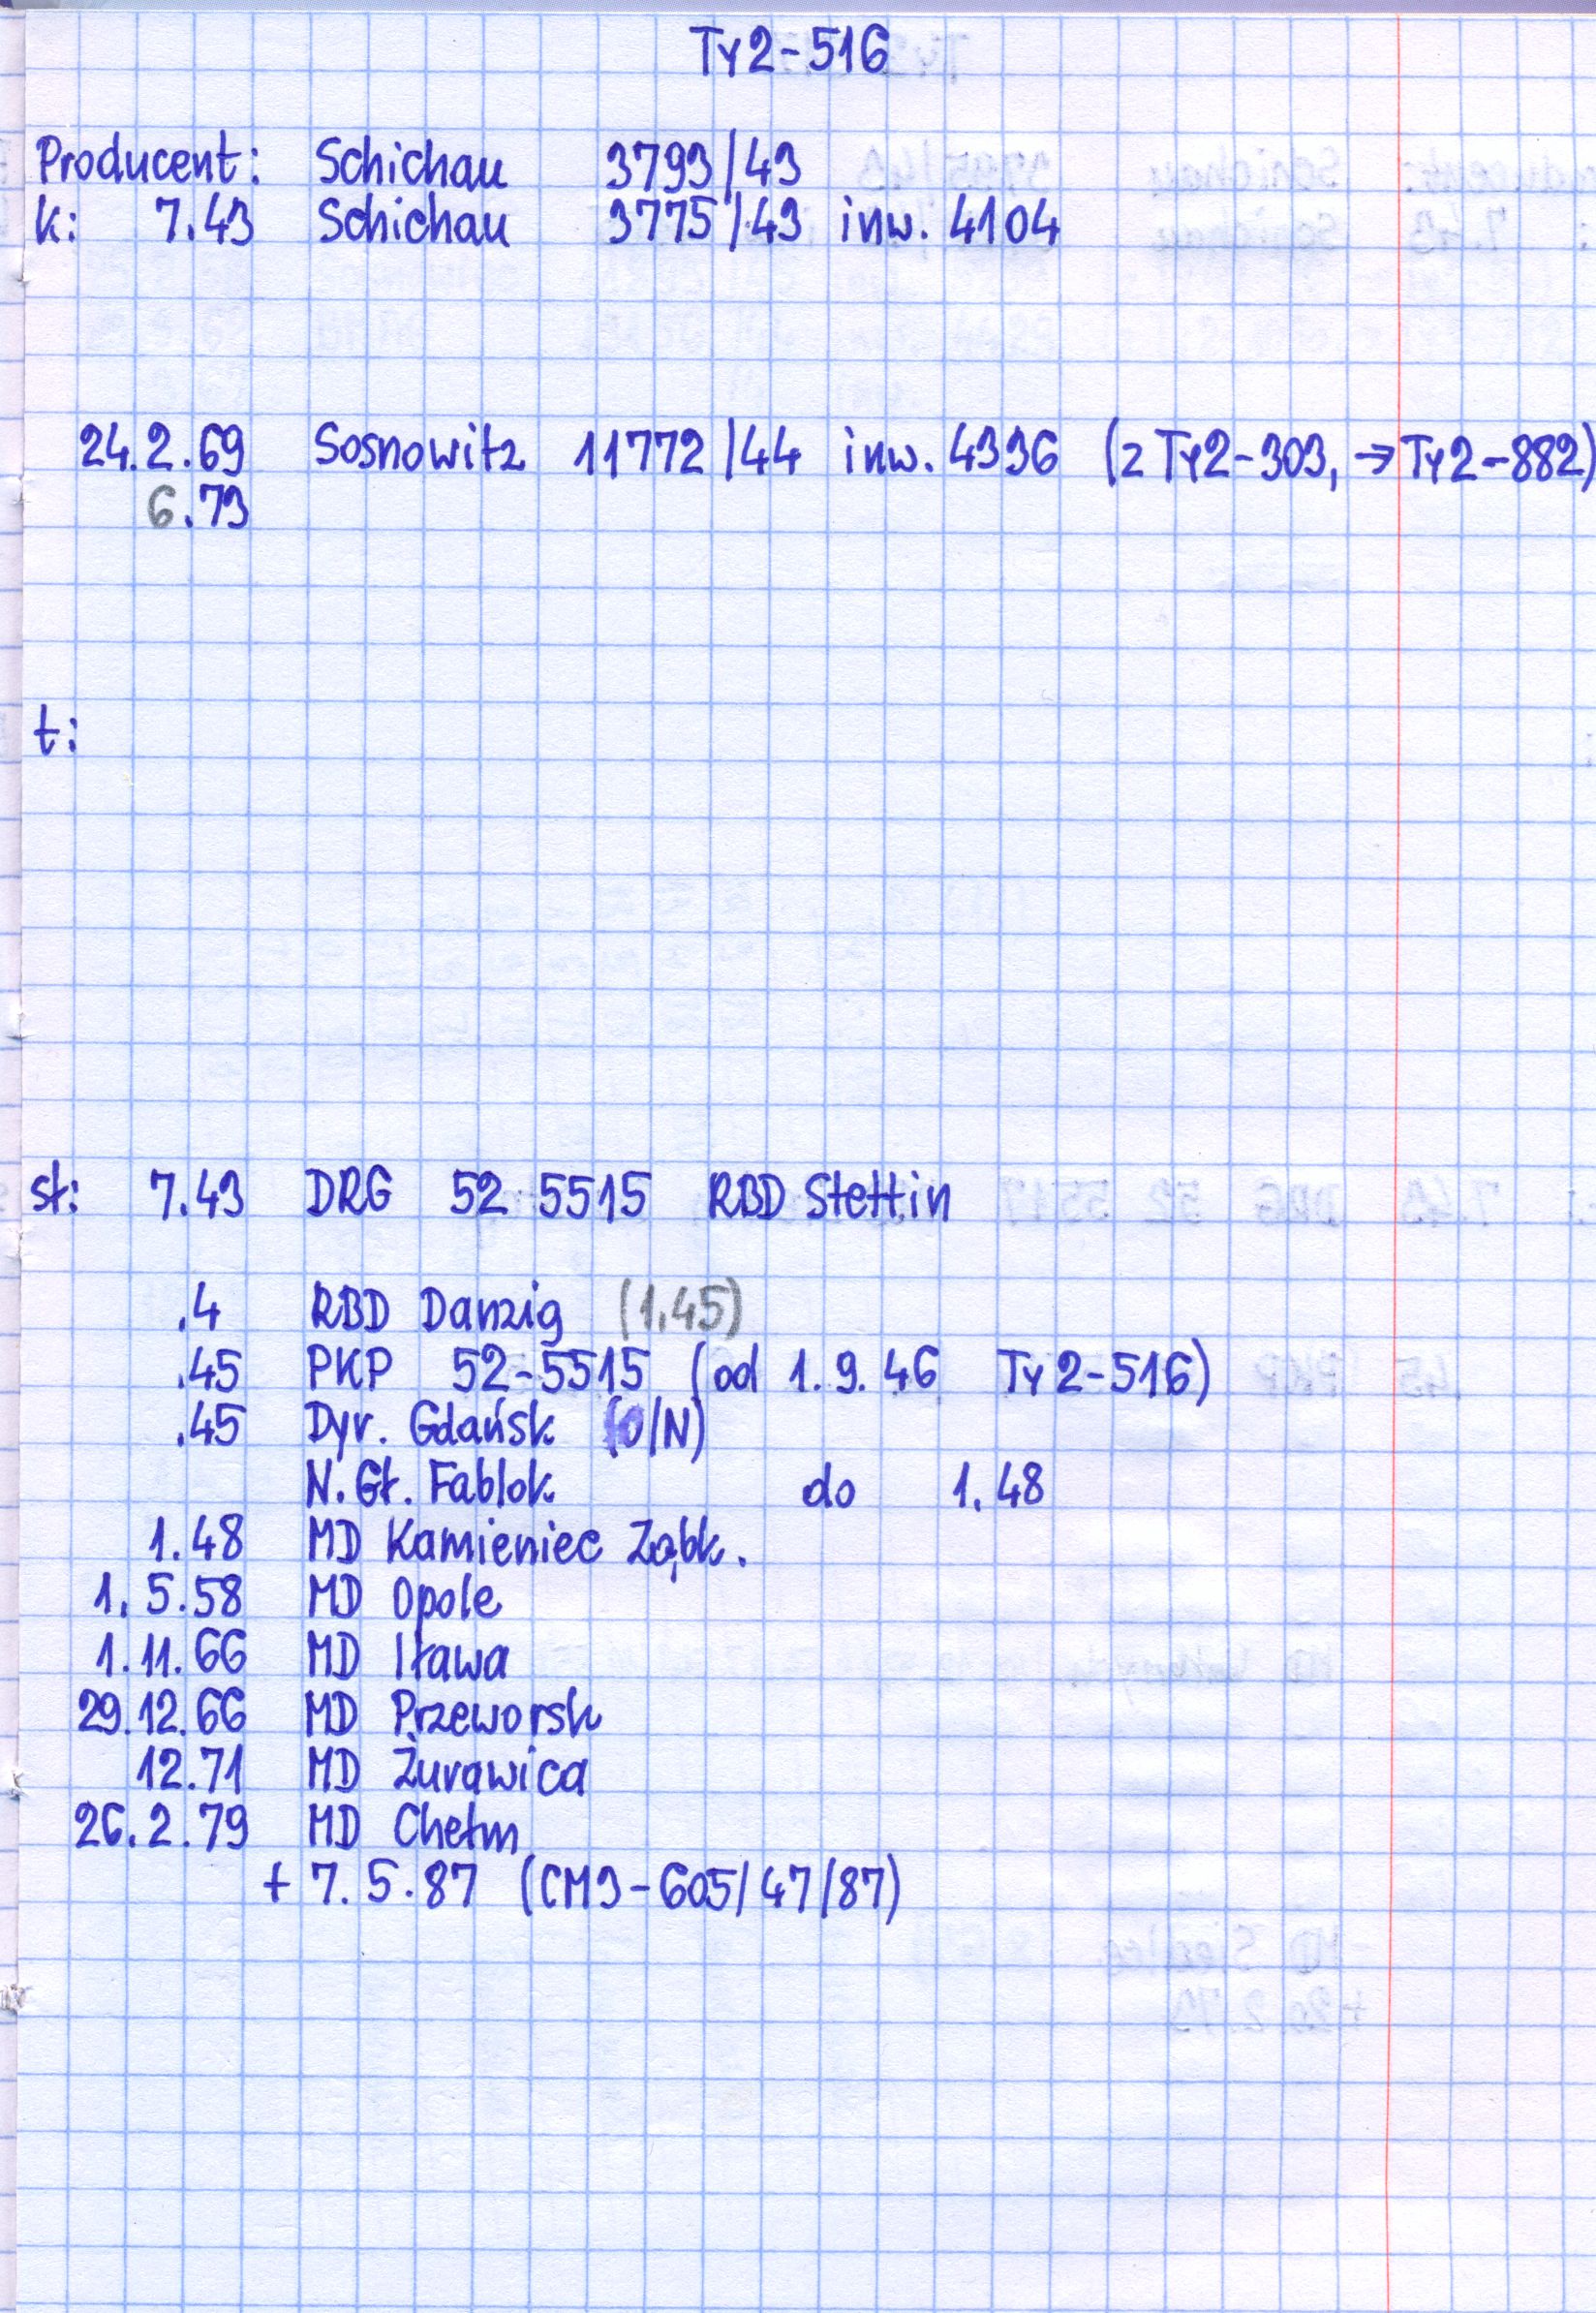 Ty2-516
Producent: Schichau 3793/43
k: 7.43 Schichau 3775/43 inw. 4104
24.2.69 Sosnowitz 11772/44 inw. 4336 (z Ty2-303, → Ty2-882)
6.73
t:
st: 7.43 DRG 52 5515 RBD Stettin
.4 RBD Danzig (1.45)
.45 PKP 52-5515 (od 1.9.46 Ty2-516)
.45 Dyr. Gdańsk (O/N)
N.Gł. Fablok do 1.48
1.48 MD Kamieniec Ząbk.
1.5.58 MD Opole
1.11.66 MD Iława
29.12.66 MD Przeworsk
12.71 MD Żurawica
26.2.79 MD Chełm
+ 7.5.87 (CM3-605/47/87)